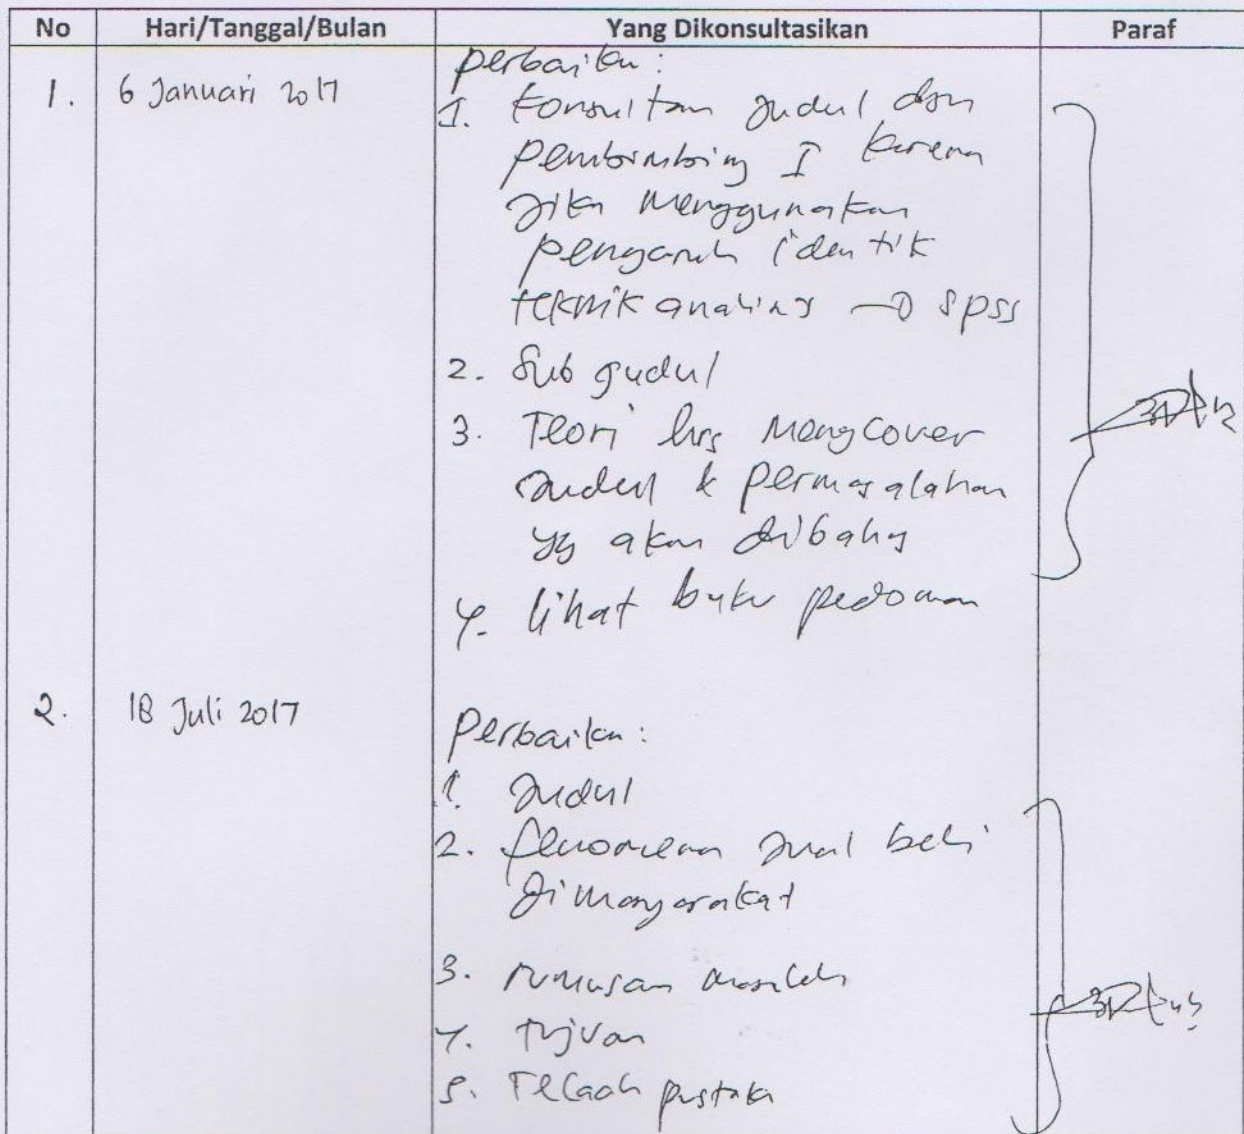 No Hari/Tanggal/Bulan Yang Dikonsultasikan Paraf
1. 6 Januari 2017 perbaikan:
1. Konsultan judul dgn
pembimbing I karena
jika menggunakan
pengaruh identik
teknik analisis → SPSS
2. Sub judul
3. Teori hrs mengcover
judul & permasalahan
yg akan dibahas
4. lihat buku pedoman
2. 18 Juli 2017 Perbaikan:
1. Judul
2. fenomena jual beli
di masyarakat
3. rumusan masalah
4. tujuan
5. Telaah pustaka